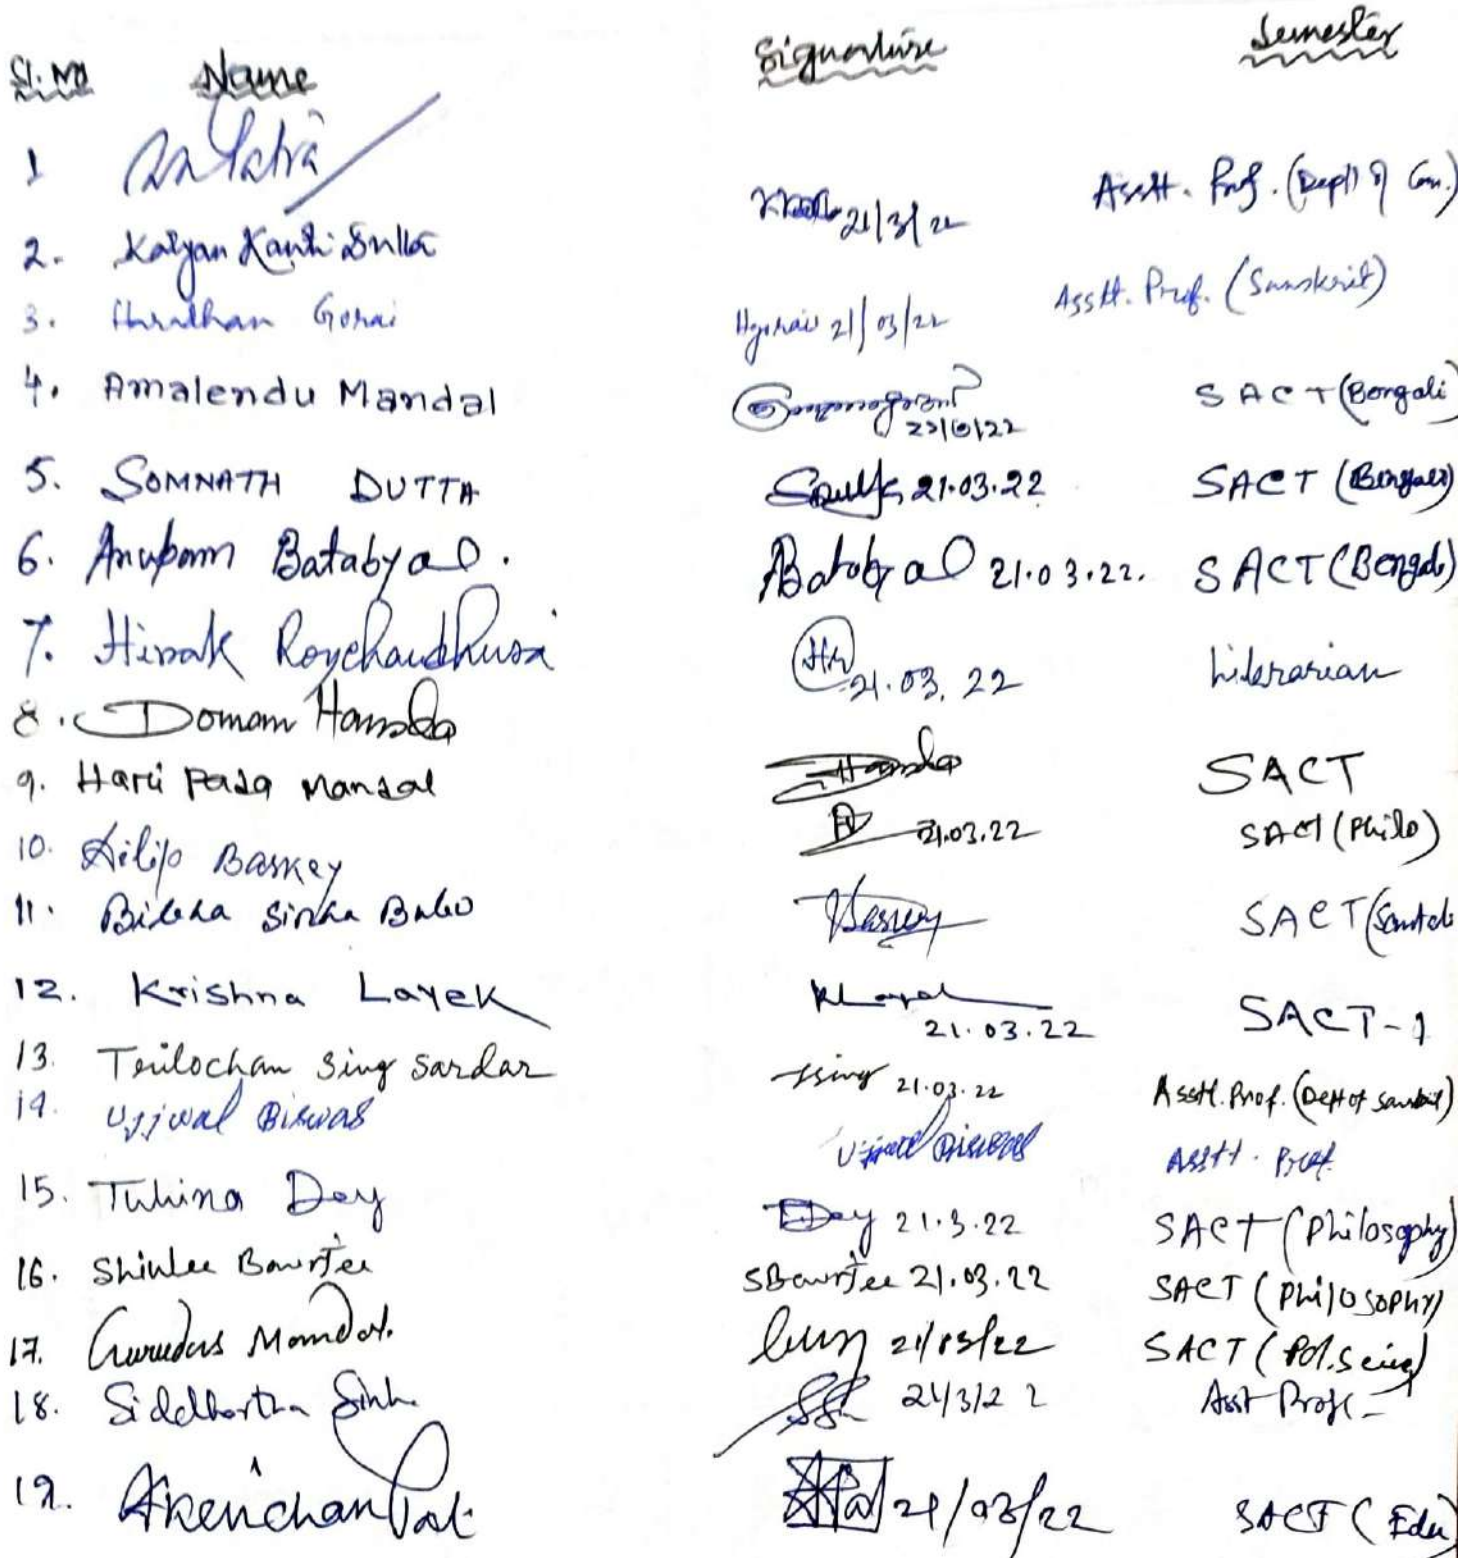 Sl. No Name Signature Semester
1
2. Kalyan Kanti Dutta 21/3/22 Asstt. Prof. (Dept) of Com.)
3. Haradhan Gorai Hgorai 21/03/22 Asstt. Prof. (Sanskrit)
4. Amalendu Mandal SACT (Bengali)
5. SOMNATH DUTTA 21.03.22 SACT (Bengali)
6. Anupam Batabyal. Batabyal 21.03.22. SACT (Bengali)
7. Hirak Roychaudhuri 21.03.22 Librarian
8. Doman Hansda Hansda SACT
9. Hari Pada Mandal 21.03.22 SACT (Philo)
10. Dilip Baskey Baskey SACT (Santali
11. Sinha Babu
12. Krishna Layek 21.03.22 SACT-1
13. Trilochan Sing Sardar TSing 21.03.22 Asstt. Prof. (Dept of Sanskrit)
14. Ujjwal Biswas Ujjwal Biswas Asstt. Prof.
15. Tuhina Dey TDey 21.3.22 SACT (Philosophy)
16. Shiulee Bowrjee SBowrjee 21.03.22 SACT (Philosophy)
17. Gurudas Mondal. 21/03/22 SACT (Pol. Scing)
18. Siddhartha Sinha 21/3/22 Asst Prof
19. Akenchan Pal Pal 21/03/22 SACT (Edu